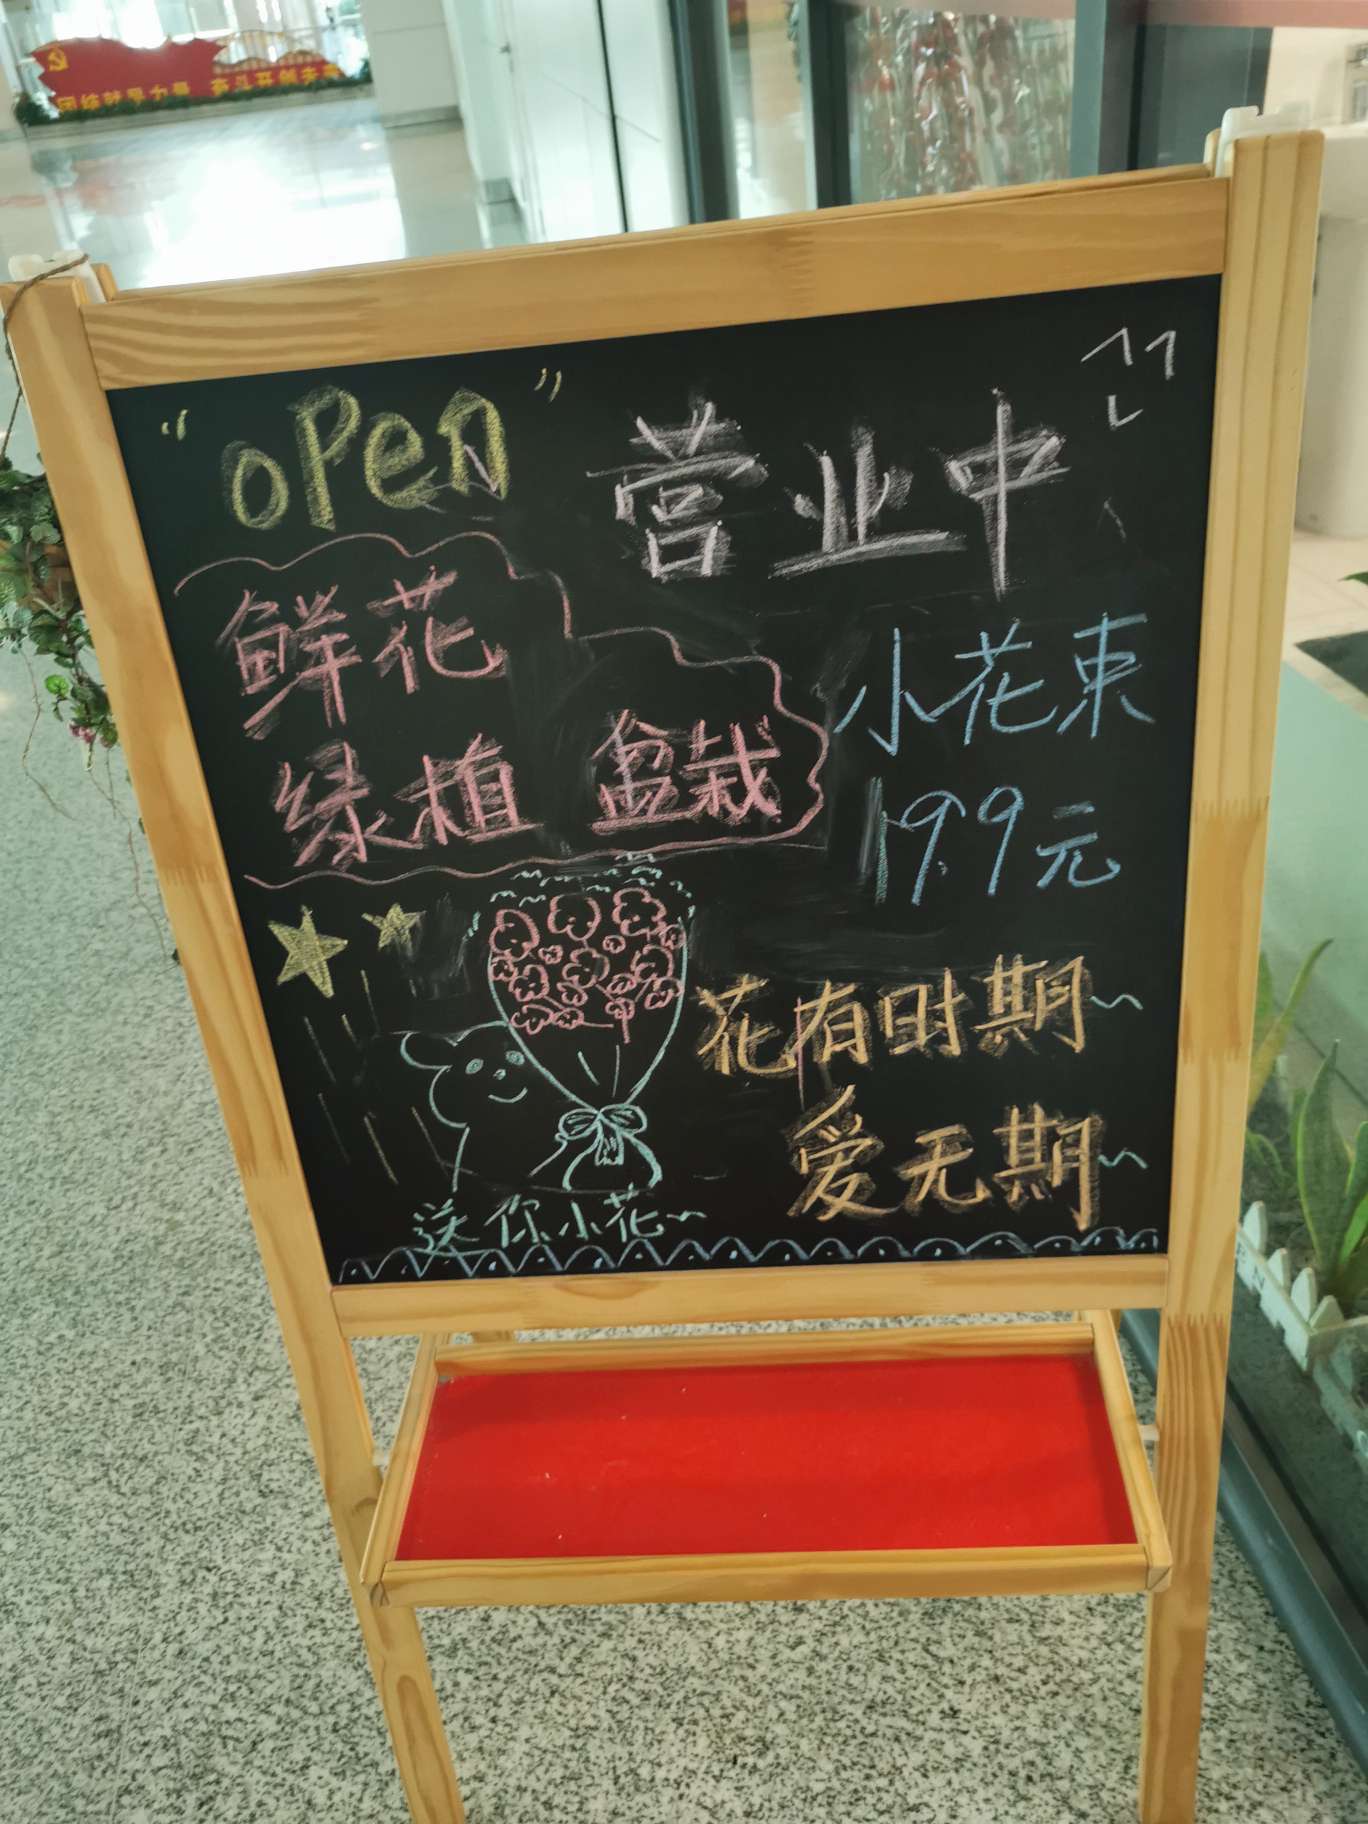 "open"
营业中
鲜花
绿植 盆栽
小花束
19.9元
花有时期~
爱无期~
送你小花~